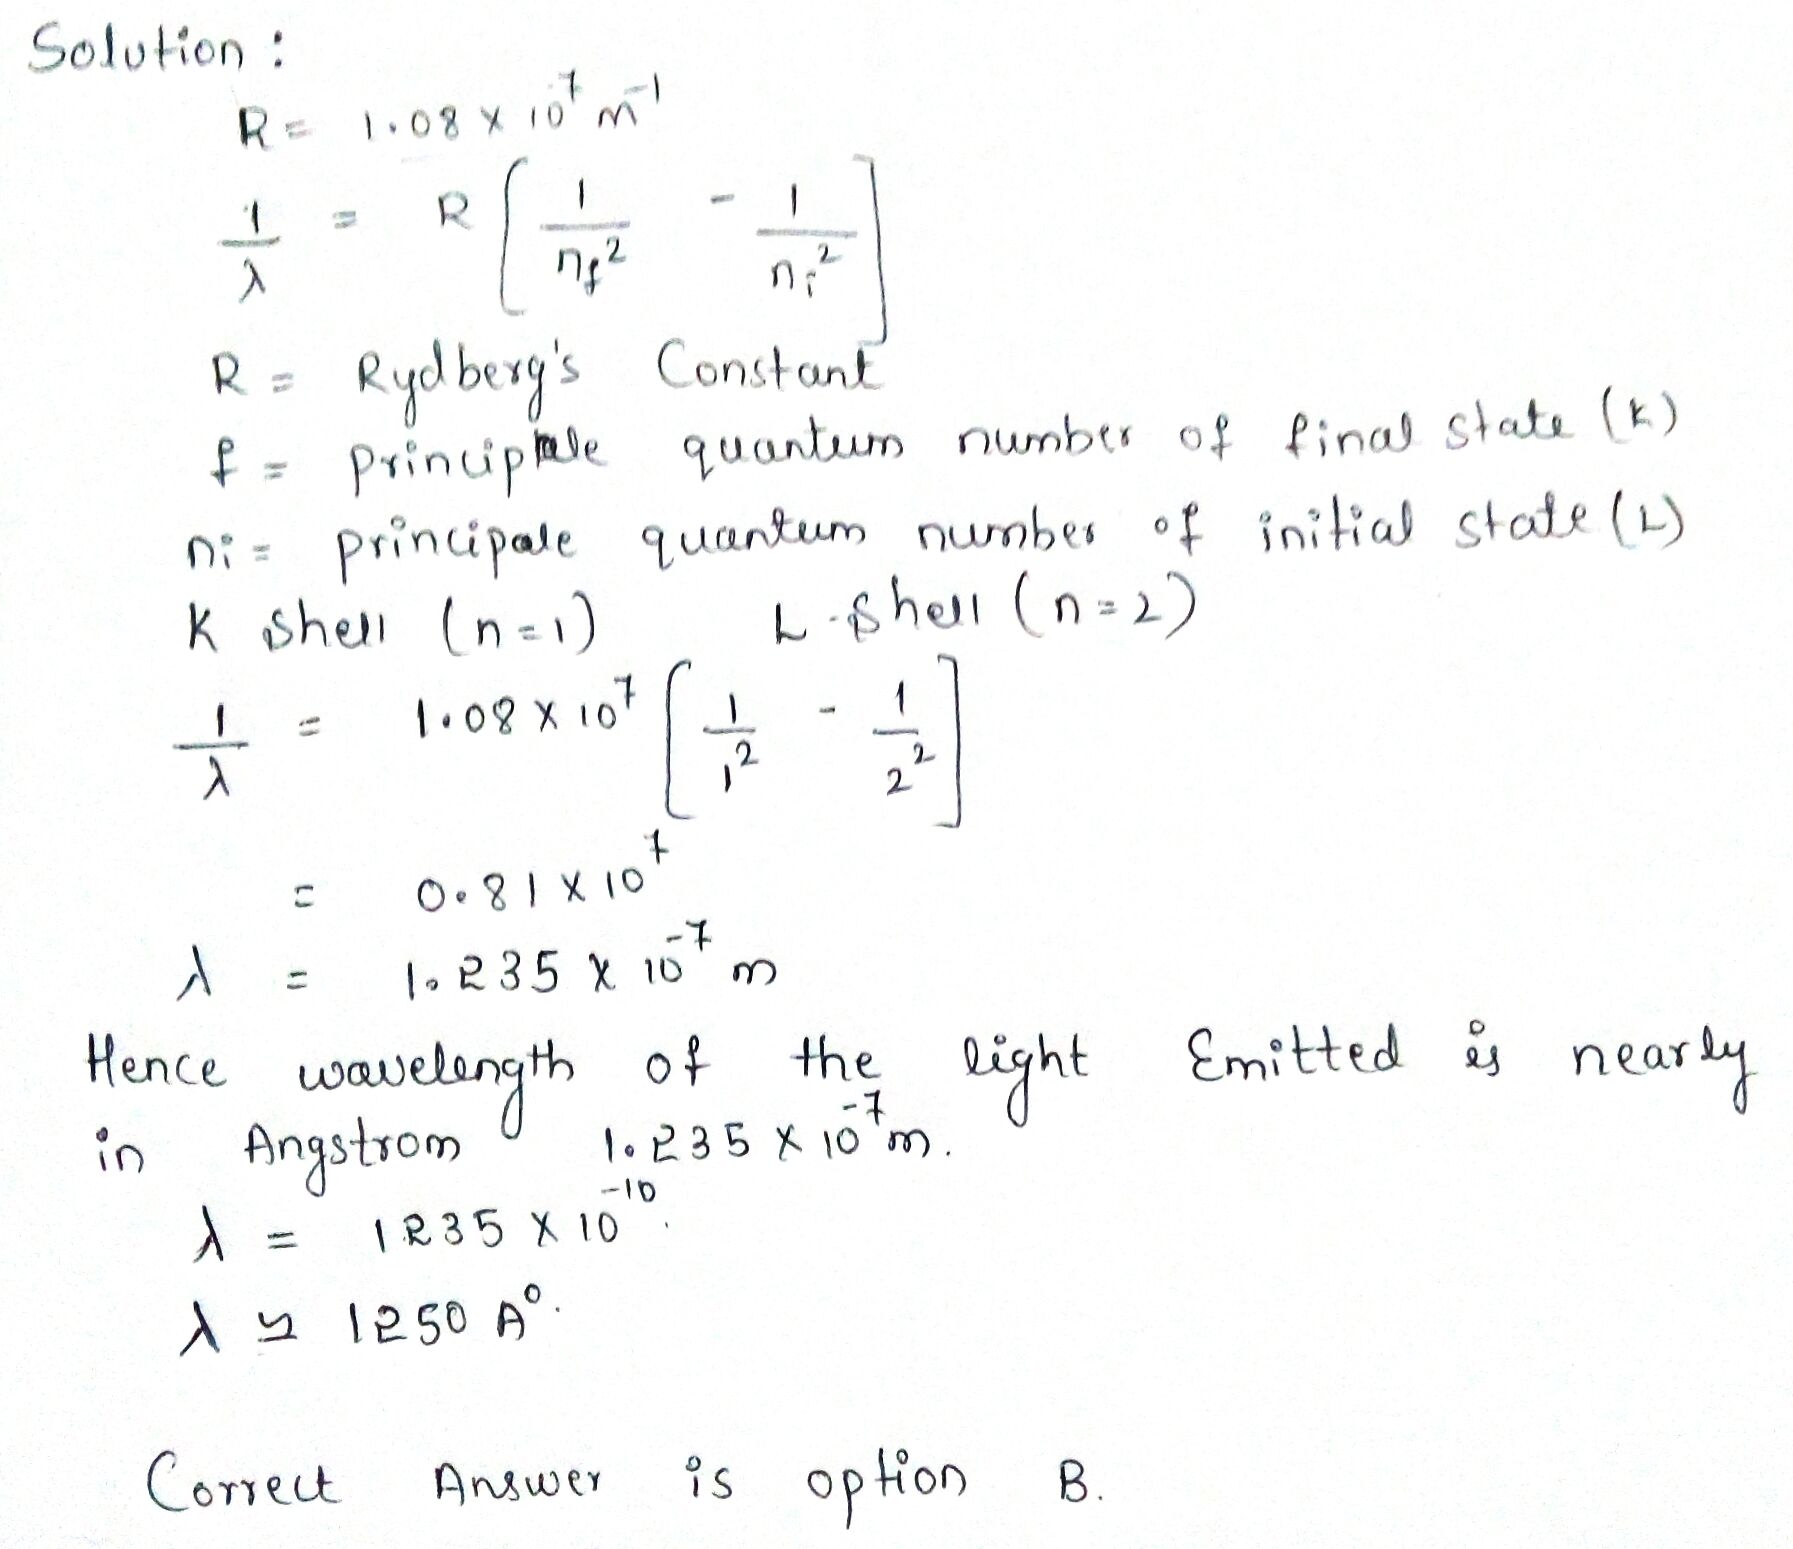 Solution :
R = 1.08 x 10⁷ m⁻¹
1/λ = R [ 1/nf² - 1/ni² ]
R = Rydberg's Constant
f = principale quantum number of final state (K)
ni = principale quantum number of initial state (L)
K shell (n=1) L-shell (n=2)
1/λ = 1.08 x 10⁷ [ 1/1² - 1/2² ]
= 0.81 x 10⁷
λ = 1.235 x 10⁻⁷ m
Hence wavelength of the light Emitted is nearly
in Angstrom 1.235 x 10⁻⁷ m.
λ = 1235 x 10⁻¹⁰.
λ ≃ 1250 A°.
Correct Answer is option B.